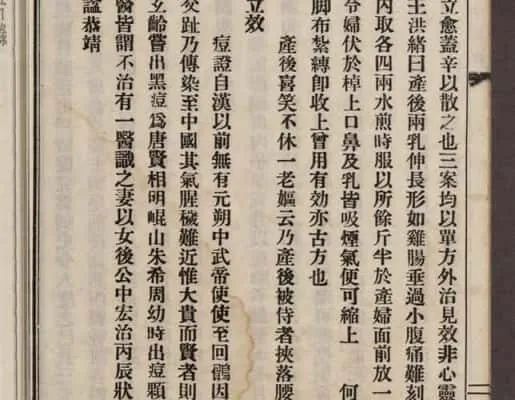 立愈蓋辛以散之也三案均以單方外治見效非心靈
王洪緒曰產後兩乳伸長形如雞腸垂過小腹痛難刻
內取各四兩水煎時服以所餘斤半於產婦面前放一
令婦伏於棹上口鼻及乳皆吸煙氣便可縮上 何
脚布紮縛卽收上曾用有効亦古方也
產後喜笑不休一老嫗云乃產後被侍者挾落腰
立效
痘證自漢以前無有元朔中武帝使使至回鶻因
交趾乃傳染至中國其氣腥穢難近惟大貴而賢者則
玄齡嘗出黑痘爲唐賢相明崐山朱希周幼時出痘顆
醫皆謂不治有一醫識之妻以女後公中宏治丙辰狀
諡恭靖